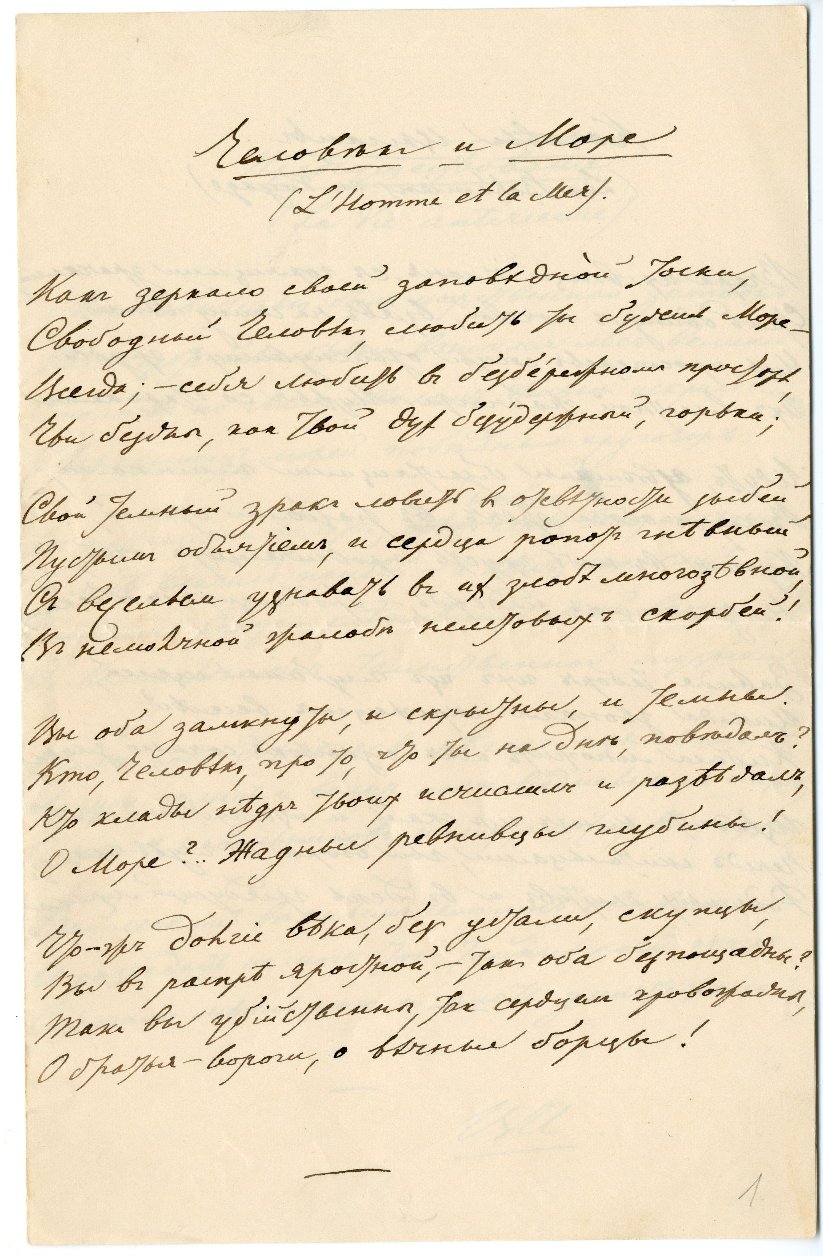 Человѣкъ и Море
(L'Homme et la Mer).
Какъ зеркало своей заповѣдной тоски,
Свободный Человѣкъ, любить ты будешь Море –
Всегда; – себя любить в безбережном просторѣ,
Чьи бездны, как твой дух безудержный, горьки;
Свой темный зракъ ловить в отсвѣтности зыбей
Пустымъ объятіемъ, и сердца ропот гнѣвный
Съ весельем узнавать в их злобѣ многозѣвной,
Въ немолчной жалобѣ нелѣтовыхъ скорбей!
Вы оба замкнуты, и скрытны, и темны.
Кто, Человѣк, про то, что ты на днѣ, повѣдалъ?
Кто клады нѣдръ твоих исчислилъ и развѣдалъ,
О Море?.. Жадные ревнивцы глубины!
Что-жъ долгіе вѣка, без устали, скупцы,
Вы в распрѣ яростной, – так оба безпощадны?
Такъ вы убійственны, так сердцем кровожадны,
О братья – вороги, о вѣчные борцы!
1